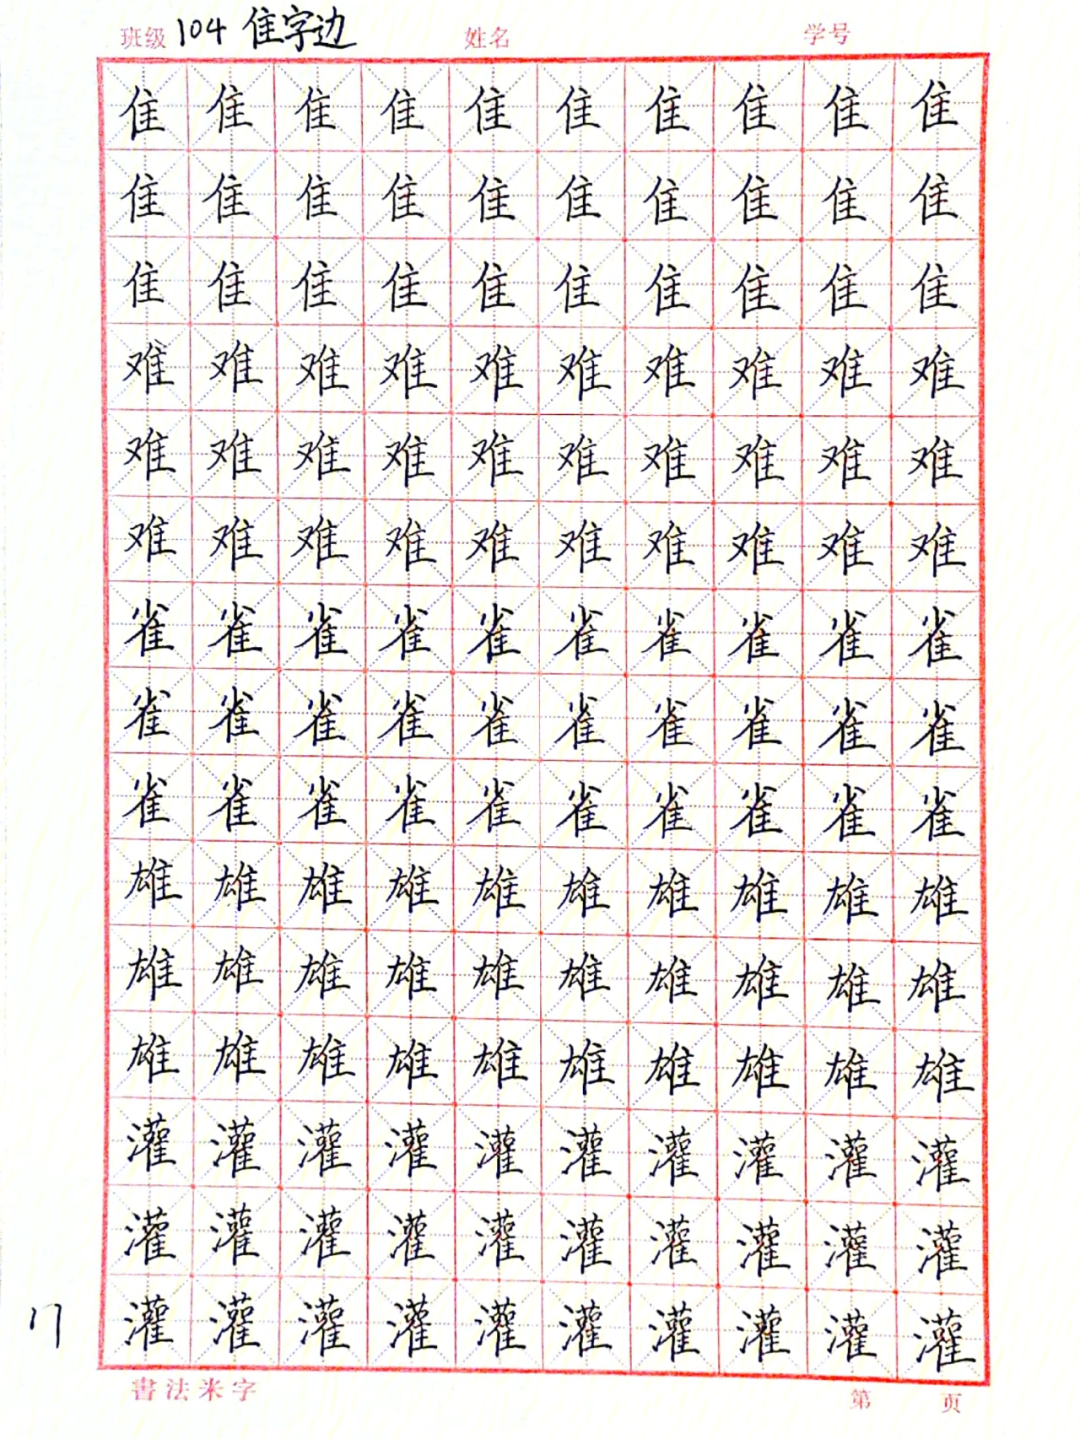 班级 104 隹字边 姓名 学号
隹 隹 隹 隹 隹 隹 隹 隹 隹 隹
隹 隹 隹 隹 隹 隹 隹 隹 隹 隹
隹 隹 隹 隹 隹 隹 隹 隹 隹 隹
难 难 难 难 难 难 难 难 难 难
难 难 难 难 难 难 难 难 难 难
难 难 难 难 难 难 难 难 难 难
雀 雀 雀 雀 雀 雀 雀 雀 雀 雀
雀 雀 雀 雀 雀 雀 雀 雀 雀 雀
雀 雀 雀 雀 雀 雀 雀 雀 雀 雀
雄 雄 雄 雄 雄 雄 雄 雄 雄 雄
雄 雄 雄 雄 雄 雄 雄 雄 雄 雄
雄 雄 雄 雄 雄 雄 雄 雄 雄 雄
灌 灌 灌 灌 灌 灌 灌 灌 灌 灌
灌 灌 灌 灌 灌 灌 灌 灌 灌 灌
17 灌 灌 灌 灌 灌 灌 灌 灌 灌 灌
書法米字 第 页